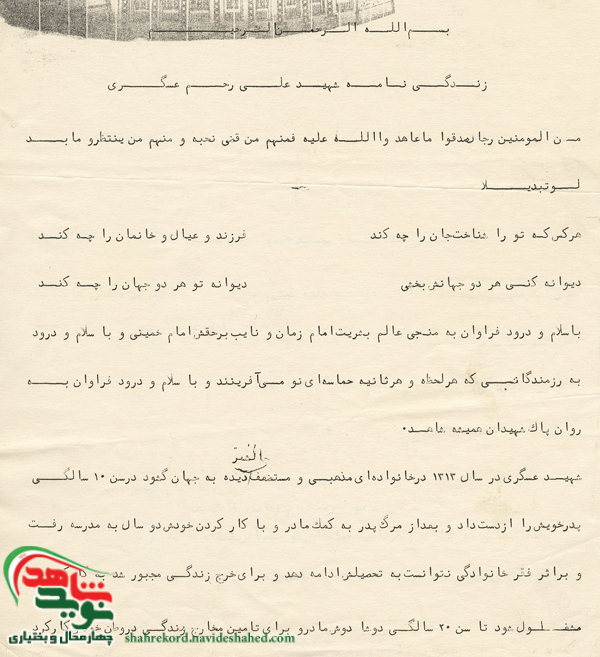 بسم الله الرحمن الرحیم
زندگی نامه شهید علی رحم عسگری
من المومنین رجال صدقوا ما عاهد والله علیه فمنهم من قضی نحبه و منهم من ینتظرو ما بد
لو تبدیلا
هرکس که تو را شناخت جان را چه کند فرزند و عیال و خانمان را چه کند
دیوانه کنی هر دو جهانش بخشی دیوانه تو هر دو جهان را چه کند
باسلام و درود فراوان به منجی عالم بشریت امام زمان و نایب برحقش امام خمینی و با سلام و درود
به رزمندگانی که هر لحظه و هر ثانیه حماسه‌ای نو می‌آفرینند و با سلام و درود فراوان به
روان پاك شهیدان همیشه شاهد.
شهید عسگری در سال ۱۳۱۳ در خانواده‌ای مذهبی و مستضعف دیده به جهان گشود در سن ۱۰ سالگی
پدر خویش را از دست داد و بعد از مرگ پدر به کمك مادر و با کار کردن خودش دو سال به مدرسه رفت
و بر اثر فقر خانوادگی نتوانست به تحصیلش ادامه دهد و برای خرج زندگی مجبور شد به
مشغلول شود تا سن ۲۰ سالگی دوشا دوش مادرو برای تامین مخارج زندگی کار کرد
نوید شاهد
چهارمحال و بختیاری
shahrekord.navideshahed.com